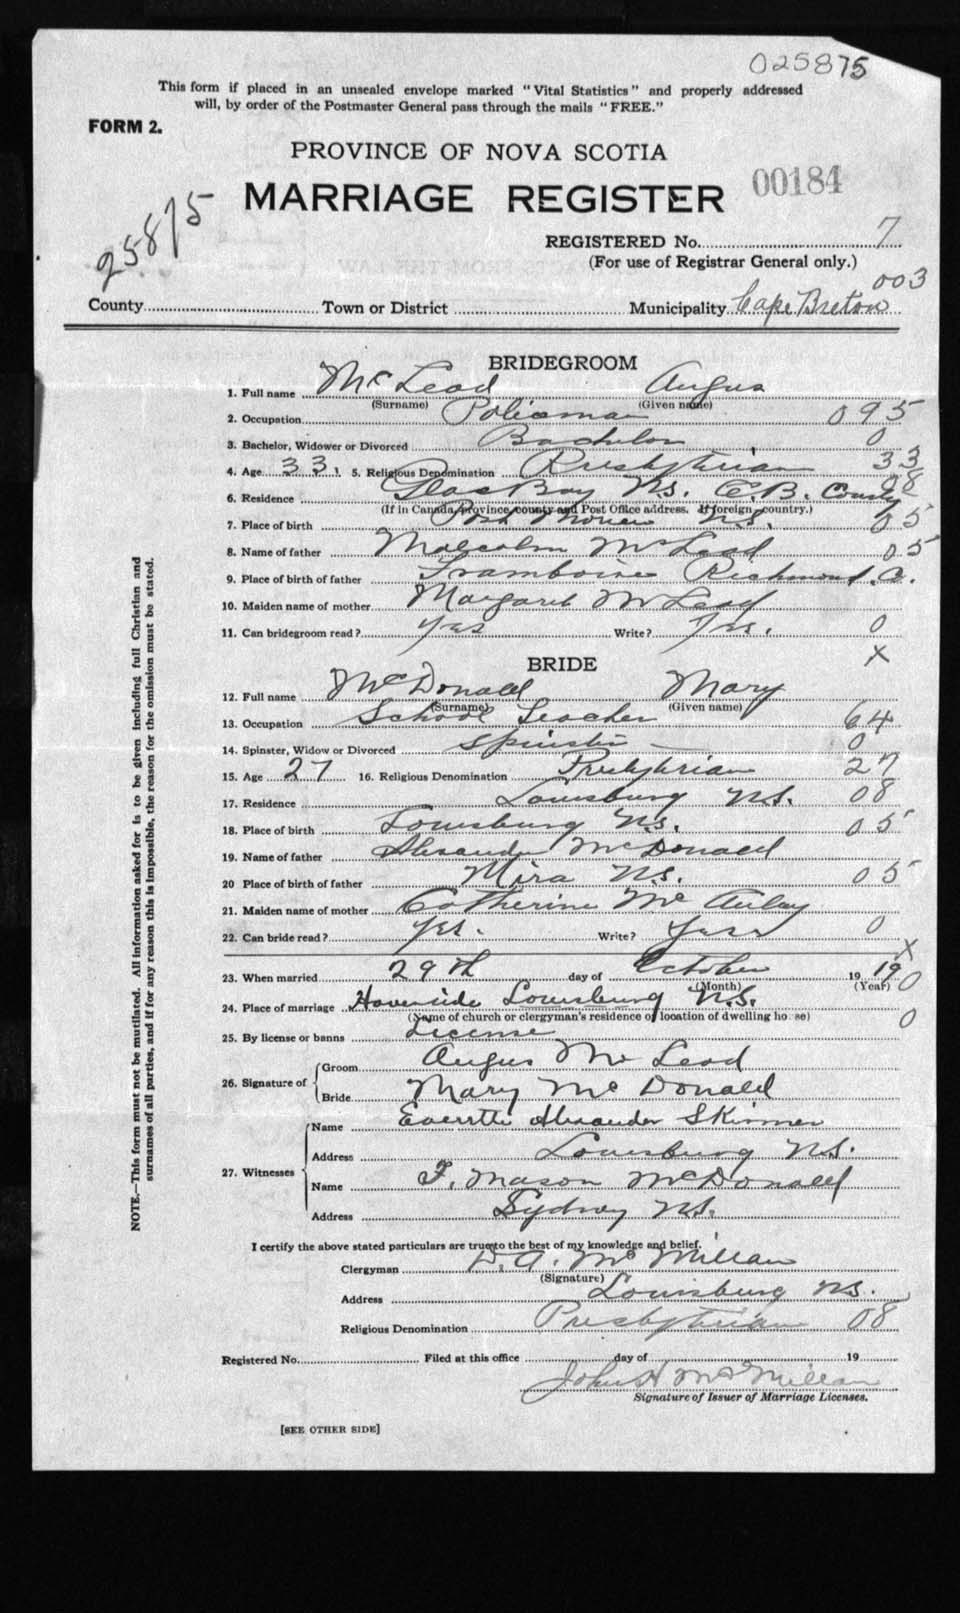 025875
This form if placed in an unsealed envelope marked "Vital Statistics" and properly addressed
will, by order of the Postmaster General pass through the mails "FREE."
FORM 2.
PROVINCE OF NOVA SCOTIA
MARRIAGE REGISTER 00184
25875
REGISTERED No. 7
(For use of Registrar General only.)
003
County Town or District Municipality Cape Breton
BRIDEGROOM
1. Full name McLeod Angus
(Surname) (Given name)
2. Occupation Policeman 095
3. Bachelor, Widower or Divorced Bachelor 0
4. Age 33 5. Religious Denomination Presbyterian 33
6. Residence Glace Bay N.S. C.B. County 08
(If in Canada, province, county and Post Office address. If foreign, country.)
7. Place of birth Port Morien N.S. 05
8. Name of father Malcolm McLeod 05
9. Place of birth of father Framboise Richmond. C.
10. Maiden name of mother Margaret McLeod
11. Can bridegroom read? Yes Write? Yes. 0
X
BRIDE
12. Full name McDonald Mary
(Surname) (Given name)
13. Occupation School Teacher 64
14. Spinster, Widow or Divorced Spinster 0
15. Age 27 16. Religious Denomination Presbyterian 27
17. Residence Louisburg N.S. 08
18. Place of birth Louisburg N.S. 05
19. Name of father Alexander McDonald
20 Place of birth of father Mira N.S. 05
21. Maiden name of mother Catherine McAulay
22. Can bride read? Yes. Write? Yes 0
X
23. When married 29th day of October 19 19 0
(Month) (Year)
24. Place of marriage Louisburg N.S.
(Name of church or clergyman's residence or location of dwelling house) 0
25. By license or banns License
26. Signature of Groom Angus McLeod
Bride Mary McDonald
27. Witnesses Name Everette Alexander Skinner
Address Louisburg N.S.
Name F. Mason McDonald
Address Sydney N.S.
I certify the above stated particulars are true to the best of my knowledge and belief.
Clergyman D. A. McMillan
(Signature)
Address Louisburg N.S.
Religious Denomination Presbyterian 08
Registered No. Filed at this office day of 19
John H McMillan
Signature of Issuer of Marriage Licenses.
[SEE OTHER SIDE]
NOTE.—This form must not be mutilated. All information asked for is to be given including full Christian and
surnames of all parties, and if for any reason this is impossible, the reason for the omission must be stated.